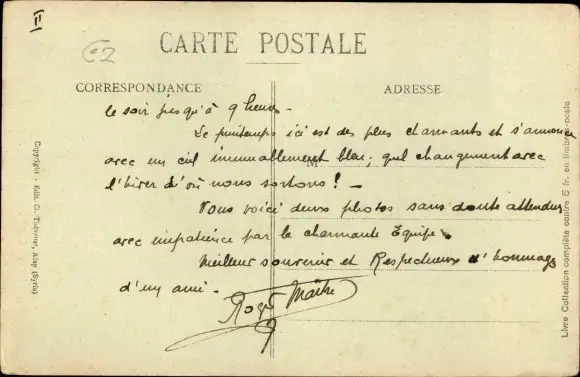 II
CARTE POSTALE
CORRESPONDANCE
ADRESSE
le soir jusqu'à 9 heures -
Le printemps ici est des plus charmants et s'annonce
avec un ciel immuablement bleu, quel changement avec
l'hiver d'où nous sortons! -
Vous voici deux photos sans doute attendues
avec impatience par la charmante Equipe.
Meilleur souvenir et Respectueux d'hommage
d'un ami.
Roger Maître
M
Copyright - Edit. G. Thévenet, Alep (Syrie)
Livre Collection complète contre 5 fr. en timbres-poste